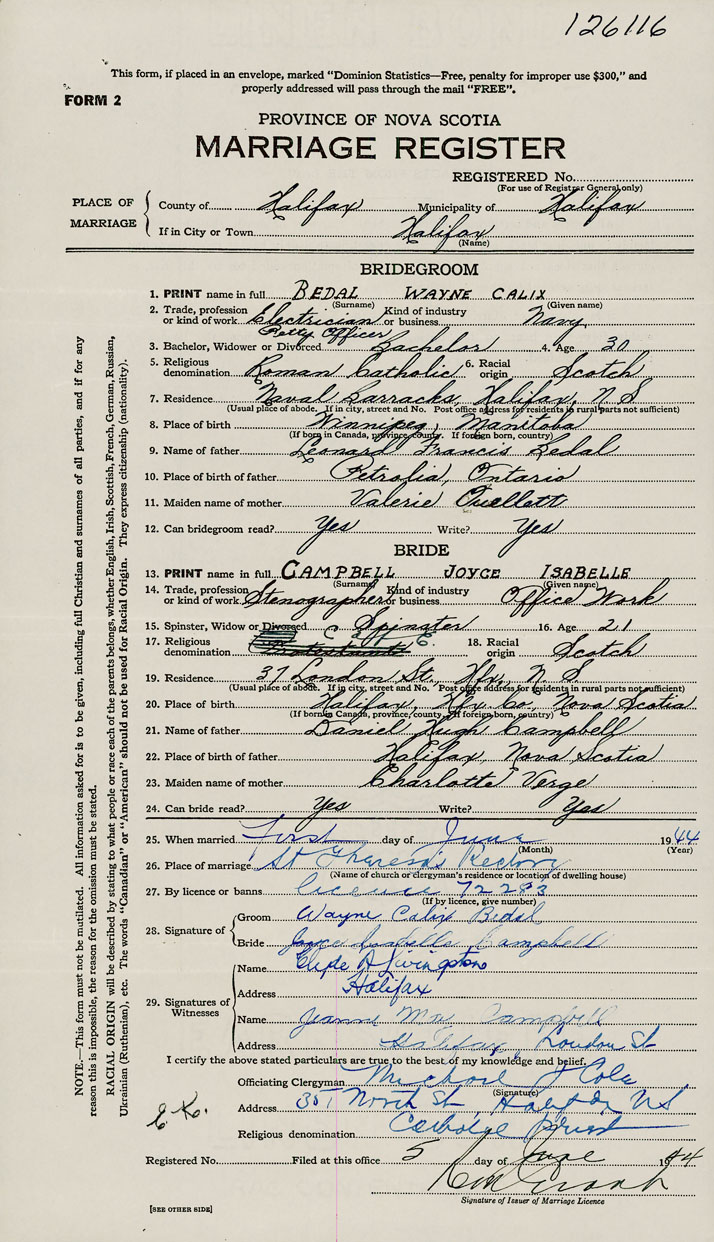 126116
This form, if placed in an envelope, marked "Dominion Statistics—Free, penalty for improper use $300," and
properly addressed will pass through the mail "FREE".
FORM 2
PROVINCE OF NOVA SCOTIA
MARRIAGE REGISTER
REGISTERED No.
(For use of Registrar General only)
PLACE OF MARRIAGE
County of Halifax Municipality of Halifax
If in City or Town Halifax
(Name)
BRIDEGROOM
1. PRINT name in full BEDAL WAYNE CALIX
(Surname) (Given name)
2. Trade, profession or kind of work Electrician Petty Officer Kind of industry or business Navy
3. Bachelor, Widower or Divorced Bachelor 4. Age 30
5. Religious denomination Roman Catholic 6. Racial origin Scotch
7. Residence Naval Barracks, Halifax, N S
(Usual place of abode. If in city, street and No. Post office address for residents in rural parts not sufficient)
8. Place of birth Winnipeg, Manitoba
(If born in Canada, province, county. If foreign born, country)
9. Name of father Leonard Francis Bedal
10. Place of birth of father Petrolia, Ontario
11. Maiden name of mother Valerie Ouellett
12. Can bridegroom read? Yes Write? Yes
BRIDE
13. PRINT name in full CAMPBELL JOYCE ISABELLE
(Surname) (Given name)
14. Trade, profession or kind of work Stenographer Kind of industry or business Office Work
15. Spinster, Widow or Divorced Spinster 16. Age 21
17. Religious denomination Protestant 18. Racial origin Scotch
19. Residence 37 London St., Hfx, N S
(Usual place of abode. If in city, street and No. Post office address for residents in rural parts not sufficient)
20. Place of birth Halifax, Hfx Co, Nova Scotia
(If born in Canada, province, county. If foreign born, country)
21. Name of father Daniel Hugh Campbell
22. Place of birth of father Halifax, Nova Scotia
23. Maiden name of mother Charlotte Verge
24. Can bride read? Yes Write? Yes
25. When married First day of June 1944
(Month) (Year)
26. Place of marriage St Theresa's Rectory
(Name of church or clergyman's residence or location of dwelling house)
27. By licence or banns licence 72283
(If by licence, give number)
28. Signature of
Groom Wayne Calix Bedal
Bride Joyce Isabelle Campbell
29. Signatures of Witnesses
Name Clyde A Livingston
Address Halifax
Name Jeanne Mae Campbell
Address Halifax, London St
I certify the above stated particulars are true to the best of my knowledge and belief.
Officiating Clergyman Michael J Cole
(Signature)
Address 351 North St, Halifax NS
Religious denomination Catholic Priest
Registered No. Filed at this office 5 day of June 1944
Signature of Issuer of Marriage Licence
[SEE OTHER SIDE]
NOTE.—This form must not be mutilated. All information asked for is to be given, including full Christian and surnames of all parties, and if for any
reason this is impossible, the reason for the omission must be stated.
RACIAL ORIGIN will be described by stating to what people or race each of the parents belongs, whether English, Irish, Scottish, French, German, Russian,
Ukrainian (Ruthenian), etc. The words "Canadian" or "American" should not be used for Racial Origin. They express citizenship (nationality).